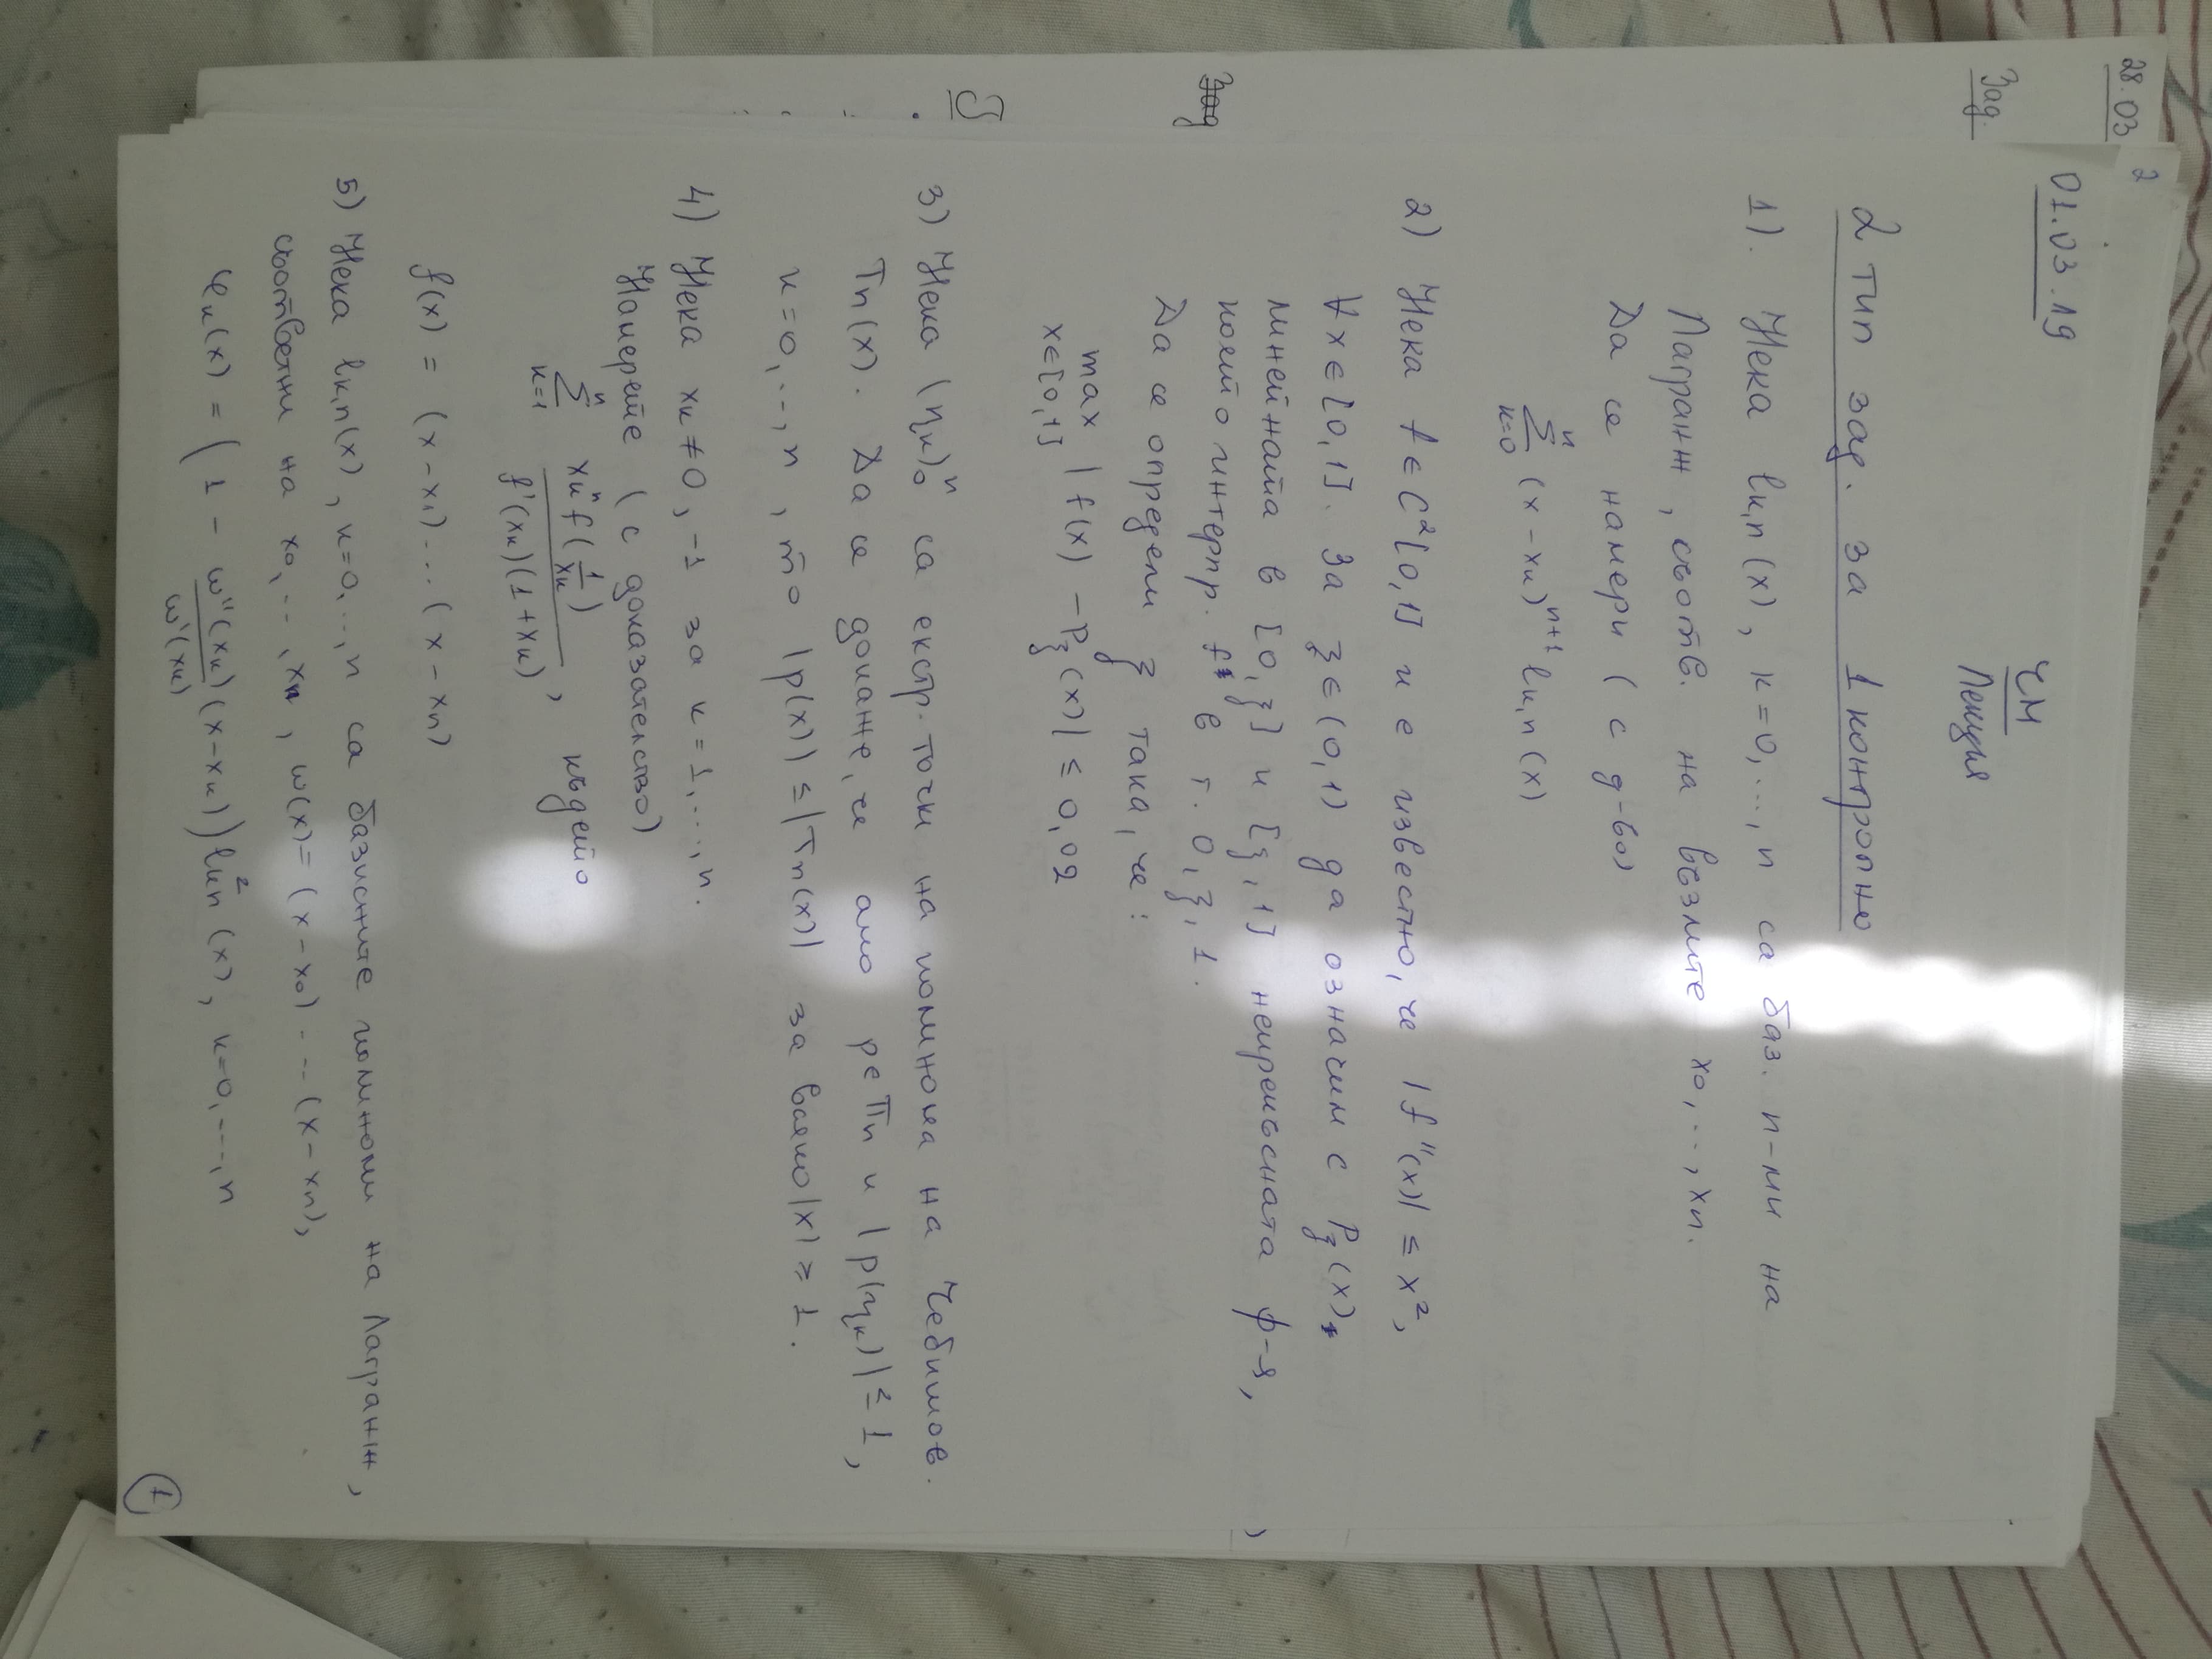 28.03
2
01.03.19
Зад.
ЧМ
Лекция
2 тип зад. за 1 контролно
1). Нека lk,n(x), k=0,...,n са баз. п-ми на
Лагранж, съотв. на възлите x0,..,xn.
Да се намери (с д-во)
∑_{k=0}^{n} (x-xk)^{n+1} lk,n(x)
2) Нека f∈C²[0,1] и е известно, че |f''(x)| ≤ x²,
∀x∈[0,1]. За ξ∈(0,1) да означим с Pξ(x)
линейната в [0,ξ] и [ξ,1] непрекъсната ф-я,
която интерпр. f в т. 0,ξ,1.
Зад
Да се определи ξ така, че:
max_{x∈[0,1]} |f(x) - Pξ(x)| ≤ 0,02
3) Нека (ηk)₀ⁿ са екстр. точки на полинома на Чебишов.
Tn(x). Да се докаже, че ако p∈Πn и |p(ηk)| ≤ 1,
k=0,...,n, то |p(x)| ≤ |Tn(x)| за всяко |x| ≥ 1.
4) Нека xk ≠ 0, -1 за k=1,...,n.
Намерете (с доказателство)
∑_{k=1}^{n} \frac{xk^n f(\frac{1}{xk})}{f'(xk)(1+xk)}, където
f(x) = (x-x1)...(x-xn)
5) Нека lk,n(x), k=0,..,n са базисните полиноми на Лагранж,
съответни на x0,...,xn, ω(x)=(x-x0)...(x-xn),
φk(x) = (1 - \frac{ω''(xk)}{ω'(xk)}(x-xk)) l²kn(x), k=0,...,n
1